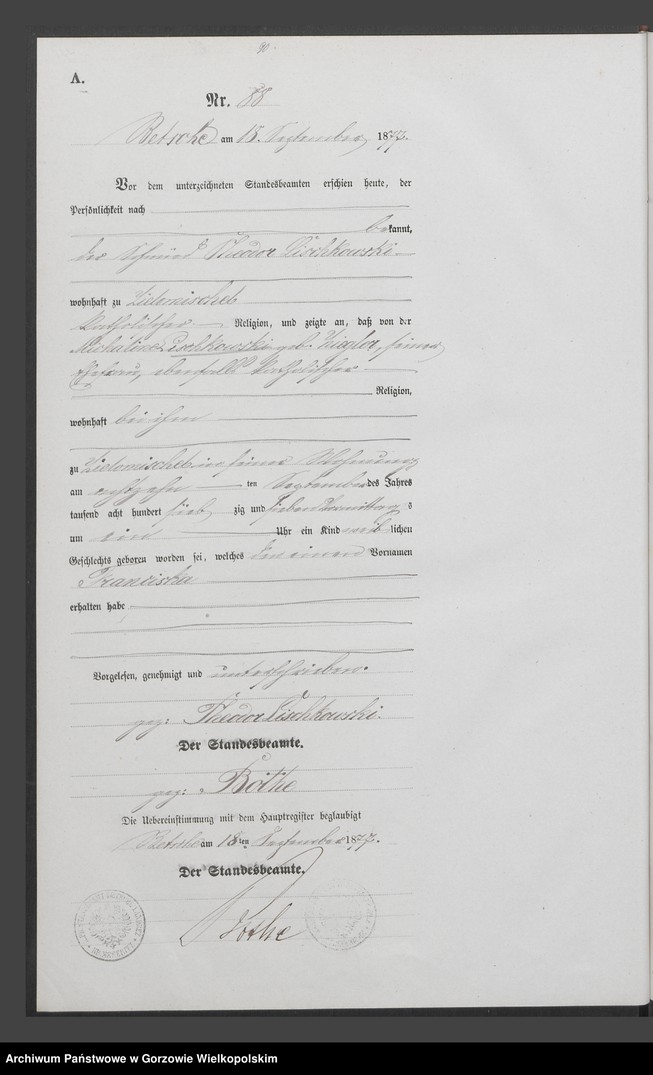 A.
Nr. 88
Betsche am 18. September 1877.
Vor dem unterzeichneten Standesbeamten erschien heute, der
Persönlichkeit nach
bekannt,
der Schmied Theodor Lischkowski
wohnhaft zu
katholischer Religion, und zeigte an, daß von der
Michalina Lischkowski geb. Ziegler, seiner
Ehefrau, ebenfalls katholischer
Religion,
wohnhaft bei ihm
zu in seiner Wohnung
am ten September des Jahres
tausend acht hundert siebzig und sieben Vormittags
um ein Uhr ein Kind weiblichen
Geschlechts geboren worden sei, welches den einen Vornamen
Franciska
erhalten habe
Vorgelesen, genehmigt und unterschrieben.
gez: Theodor Lischkowski.
Der Standesbeamte.
gez: Bothe
Die Uebereinstimmung mit dem Hauptregister beglaubigt
Betsche am 18ten September 1877.
Der Standesbeamte.
Bothe
Archiwum Państwowe w Gorzowie Wielkopolskim